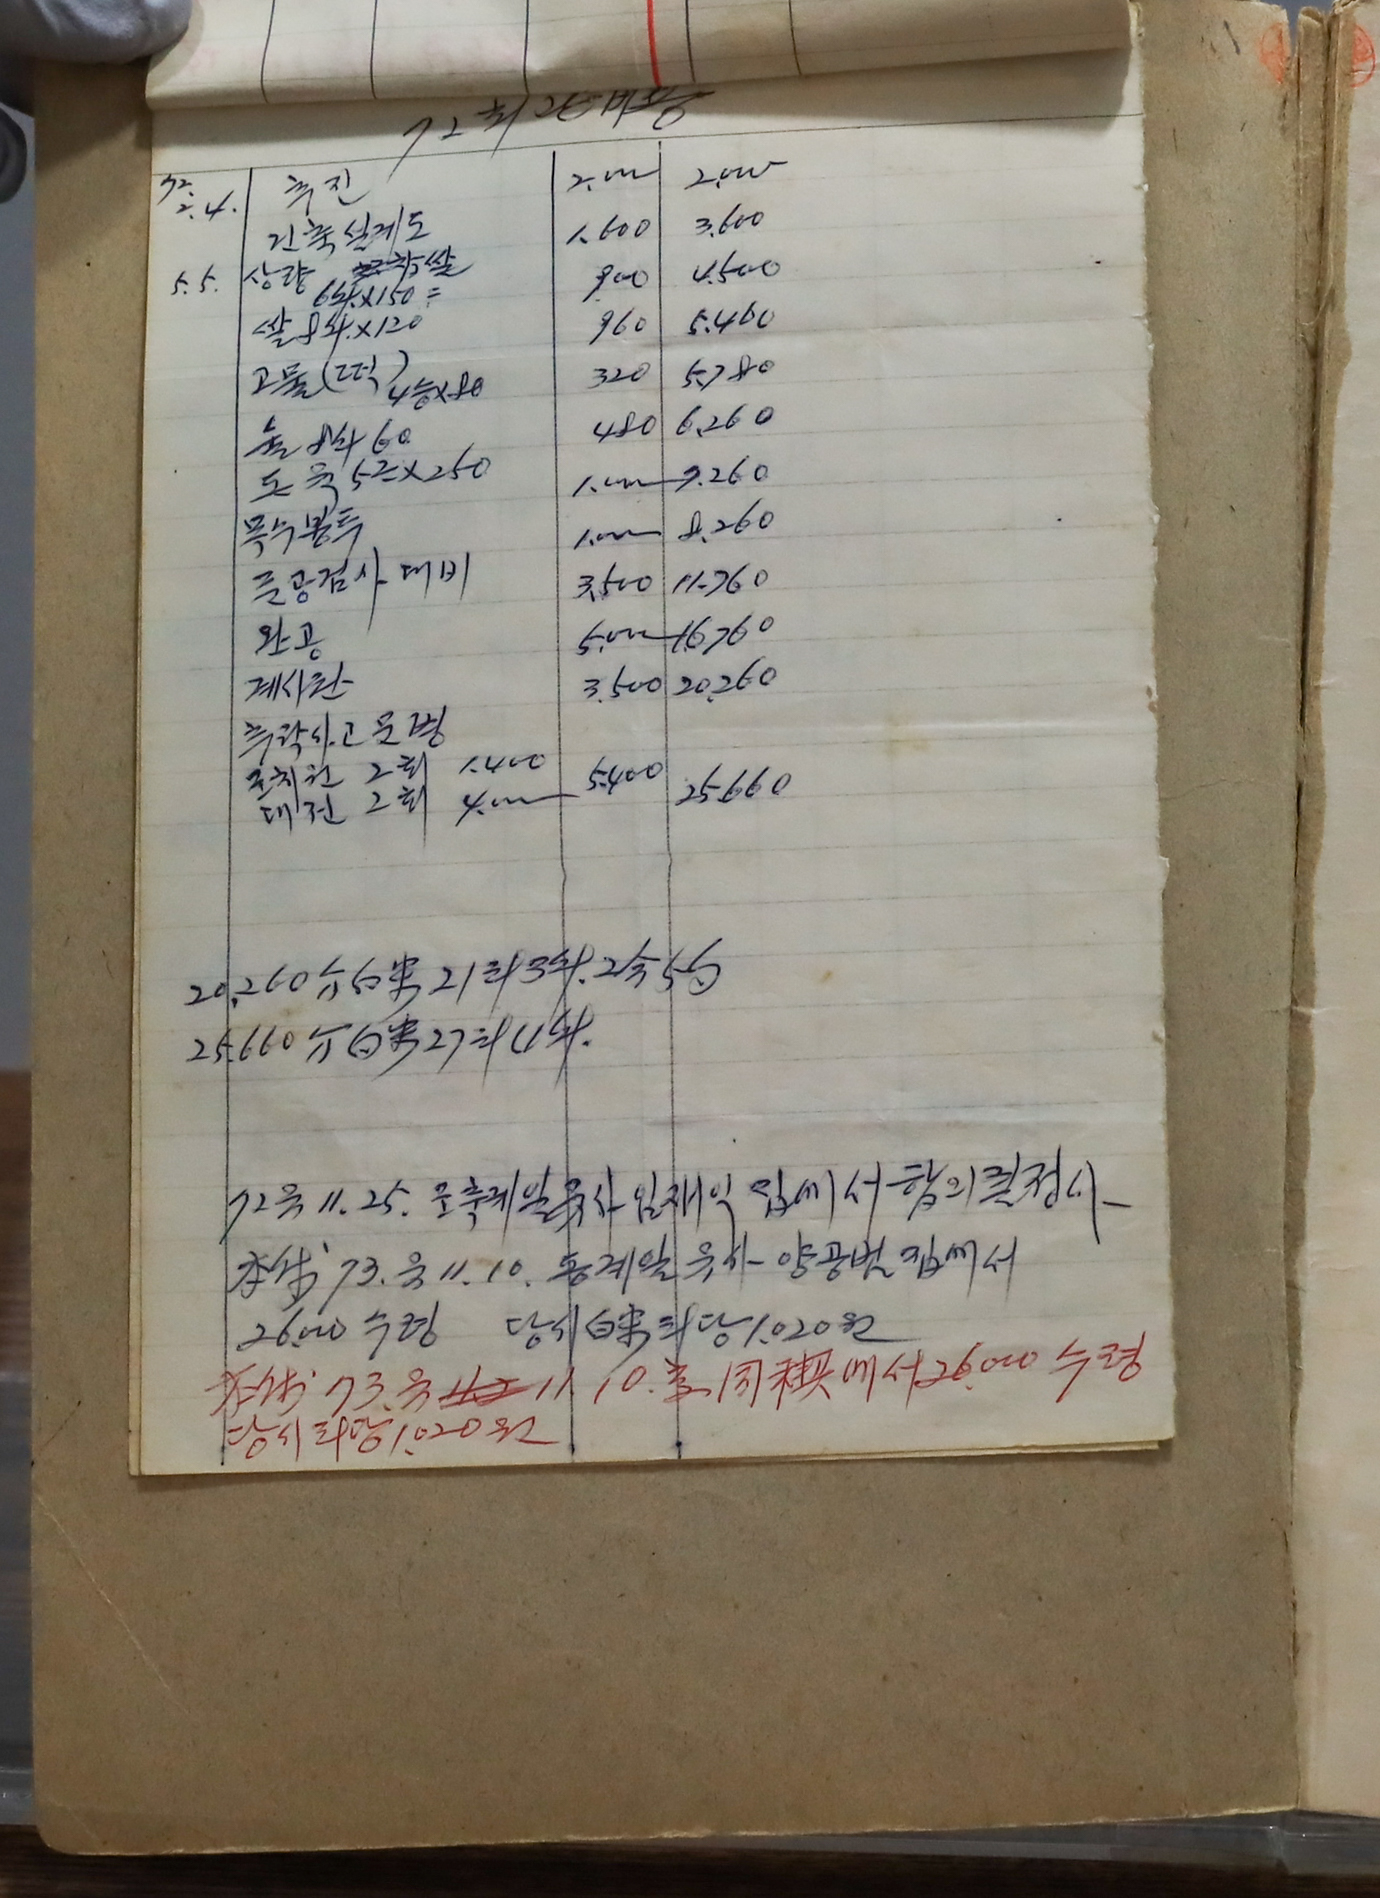 72.
2.4. 추진 2.000 2.000
건축설계도 1.600 3.600
5.5. 상량 쌀
6斗×150= 900 4.500
쌀 8斗×120 960 5.460
고물(떡) 4승×80 320 5.780
술 8斗 60 480 6.260
돈육 5근×250 1.000 7.260
목수봉투 1.000 8.260
준공검사 대비 3.500 11.760
완공 5.000 16.760
계사환 3.500 20.260
추락사고 문병
조치원 2회 1.400
대전 2회 4.000 5.400 25.660
20.260 白米 21斗 5
25.660 白米 27斗
72. 11. 25. 유사 임재익 집에서 합의결정시
73. 11. 10. 동계일 유사 양공벌 집에서
26.000 수령 당시 白米 斗당 1.020원
73. 11 10. 同稧에서 26.000 수령
당시 斗당 1.020원